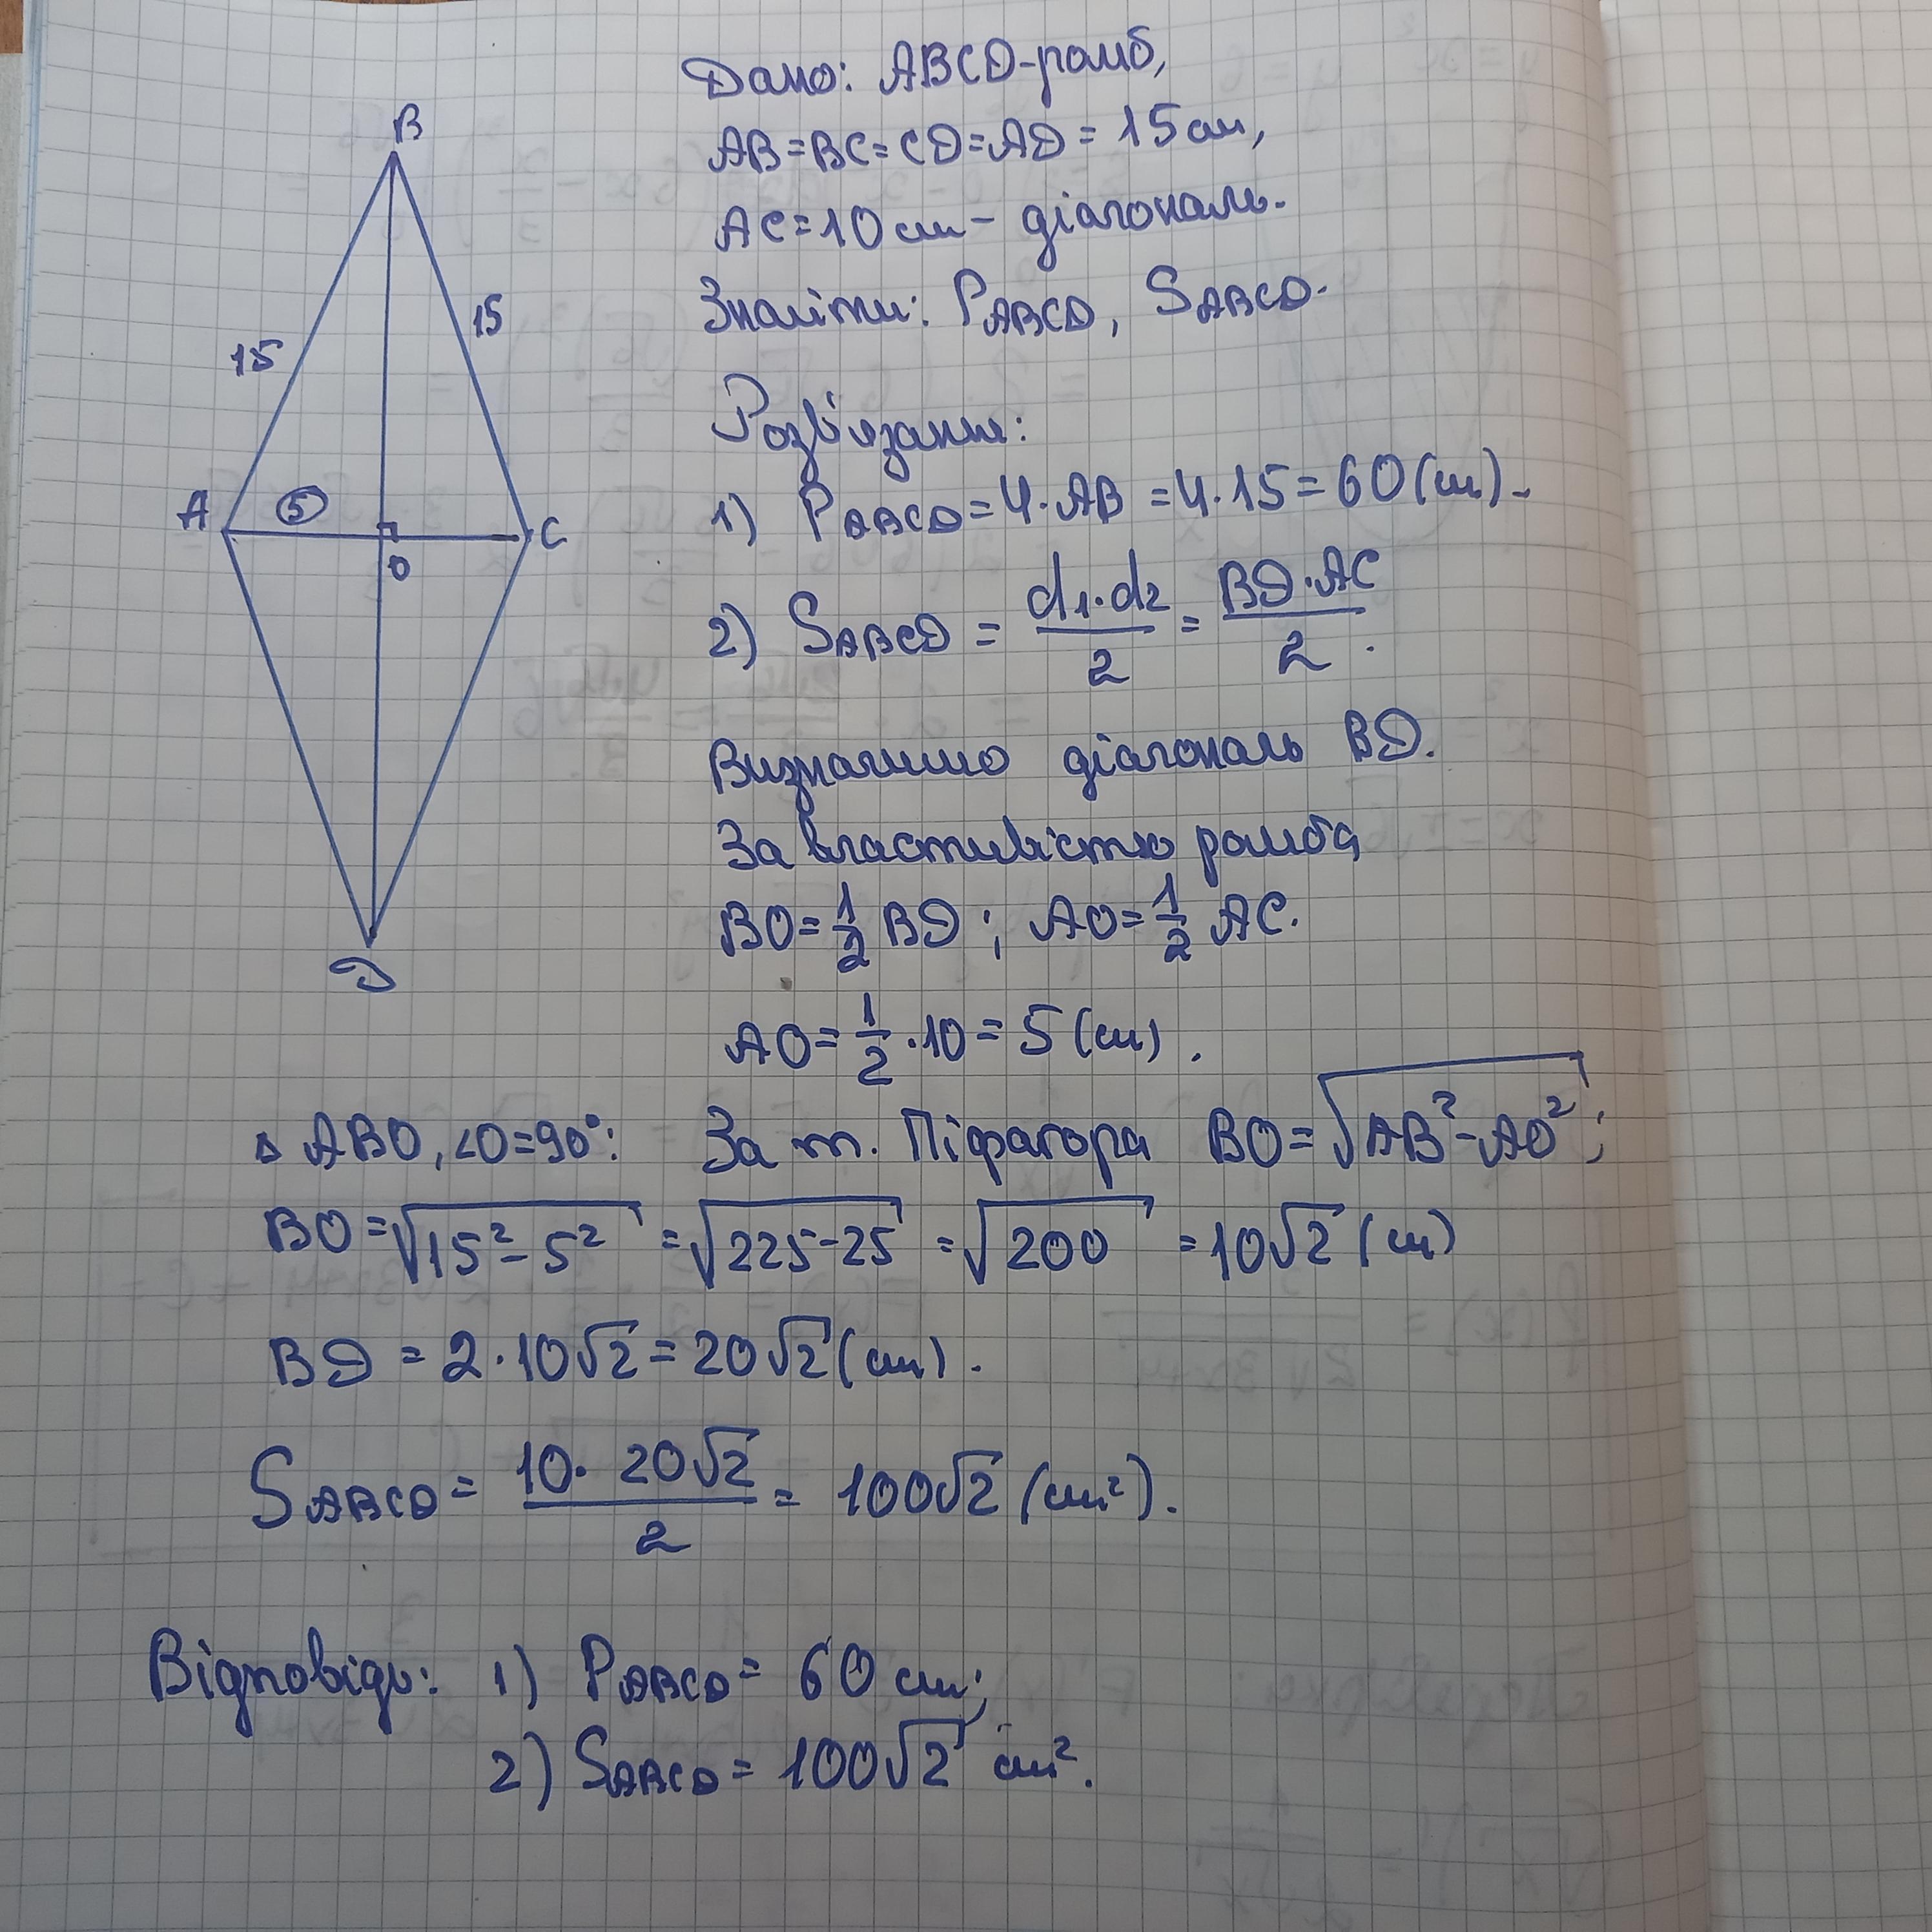 B
15
15
A
5
C
O
D
Дано: ABCD-ромб,
AB=BC=CD=AD=15 см,
AC=10 см - діагональ.
Знайти: P_ABCD, S_ABCD.
Розв'язання:
1) P_ABCD = 4·AB = 4·15 = 60 (см).
2) S_ABCD = d₁·d₂/2 = BD·AC/2.
Визначимо діагональ BD.
За властивістю ромба
BO = 1/2 BD; AO = 1/2 AC.
AO = 1/2 · 10 = 5 (см).
△ABO, ∠O=90°: За т. Піфагора BO = √(AB²-AO²);
BO = √(15²-5²) = √(225-25) = √200 = 10√2 (см)
BD = 2·10√2 = 20√2 (см).
S_ABCD = 10·20√2/2 = 100√2 (см²).
Відповідь: 1) P_ABCD = 60 см;
2) S_ABCD = 100√2 см².